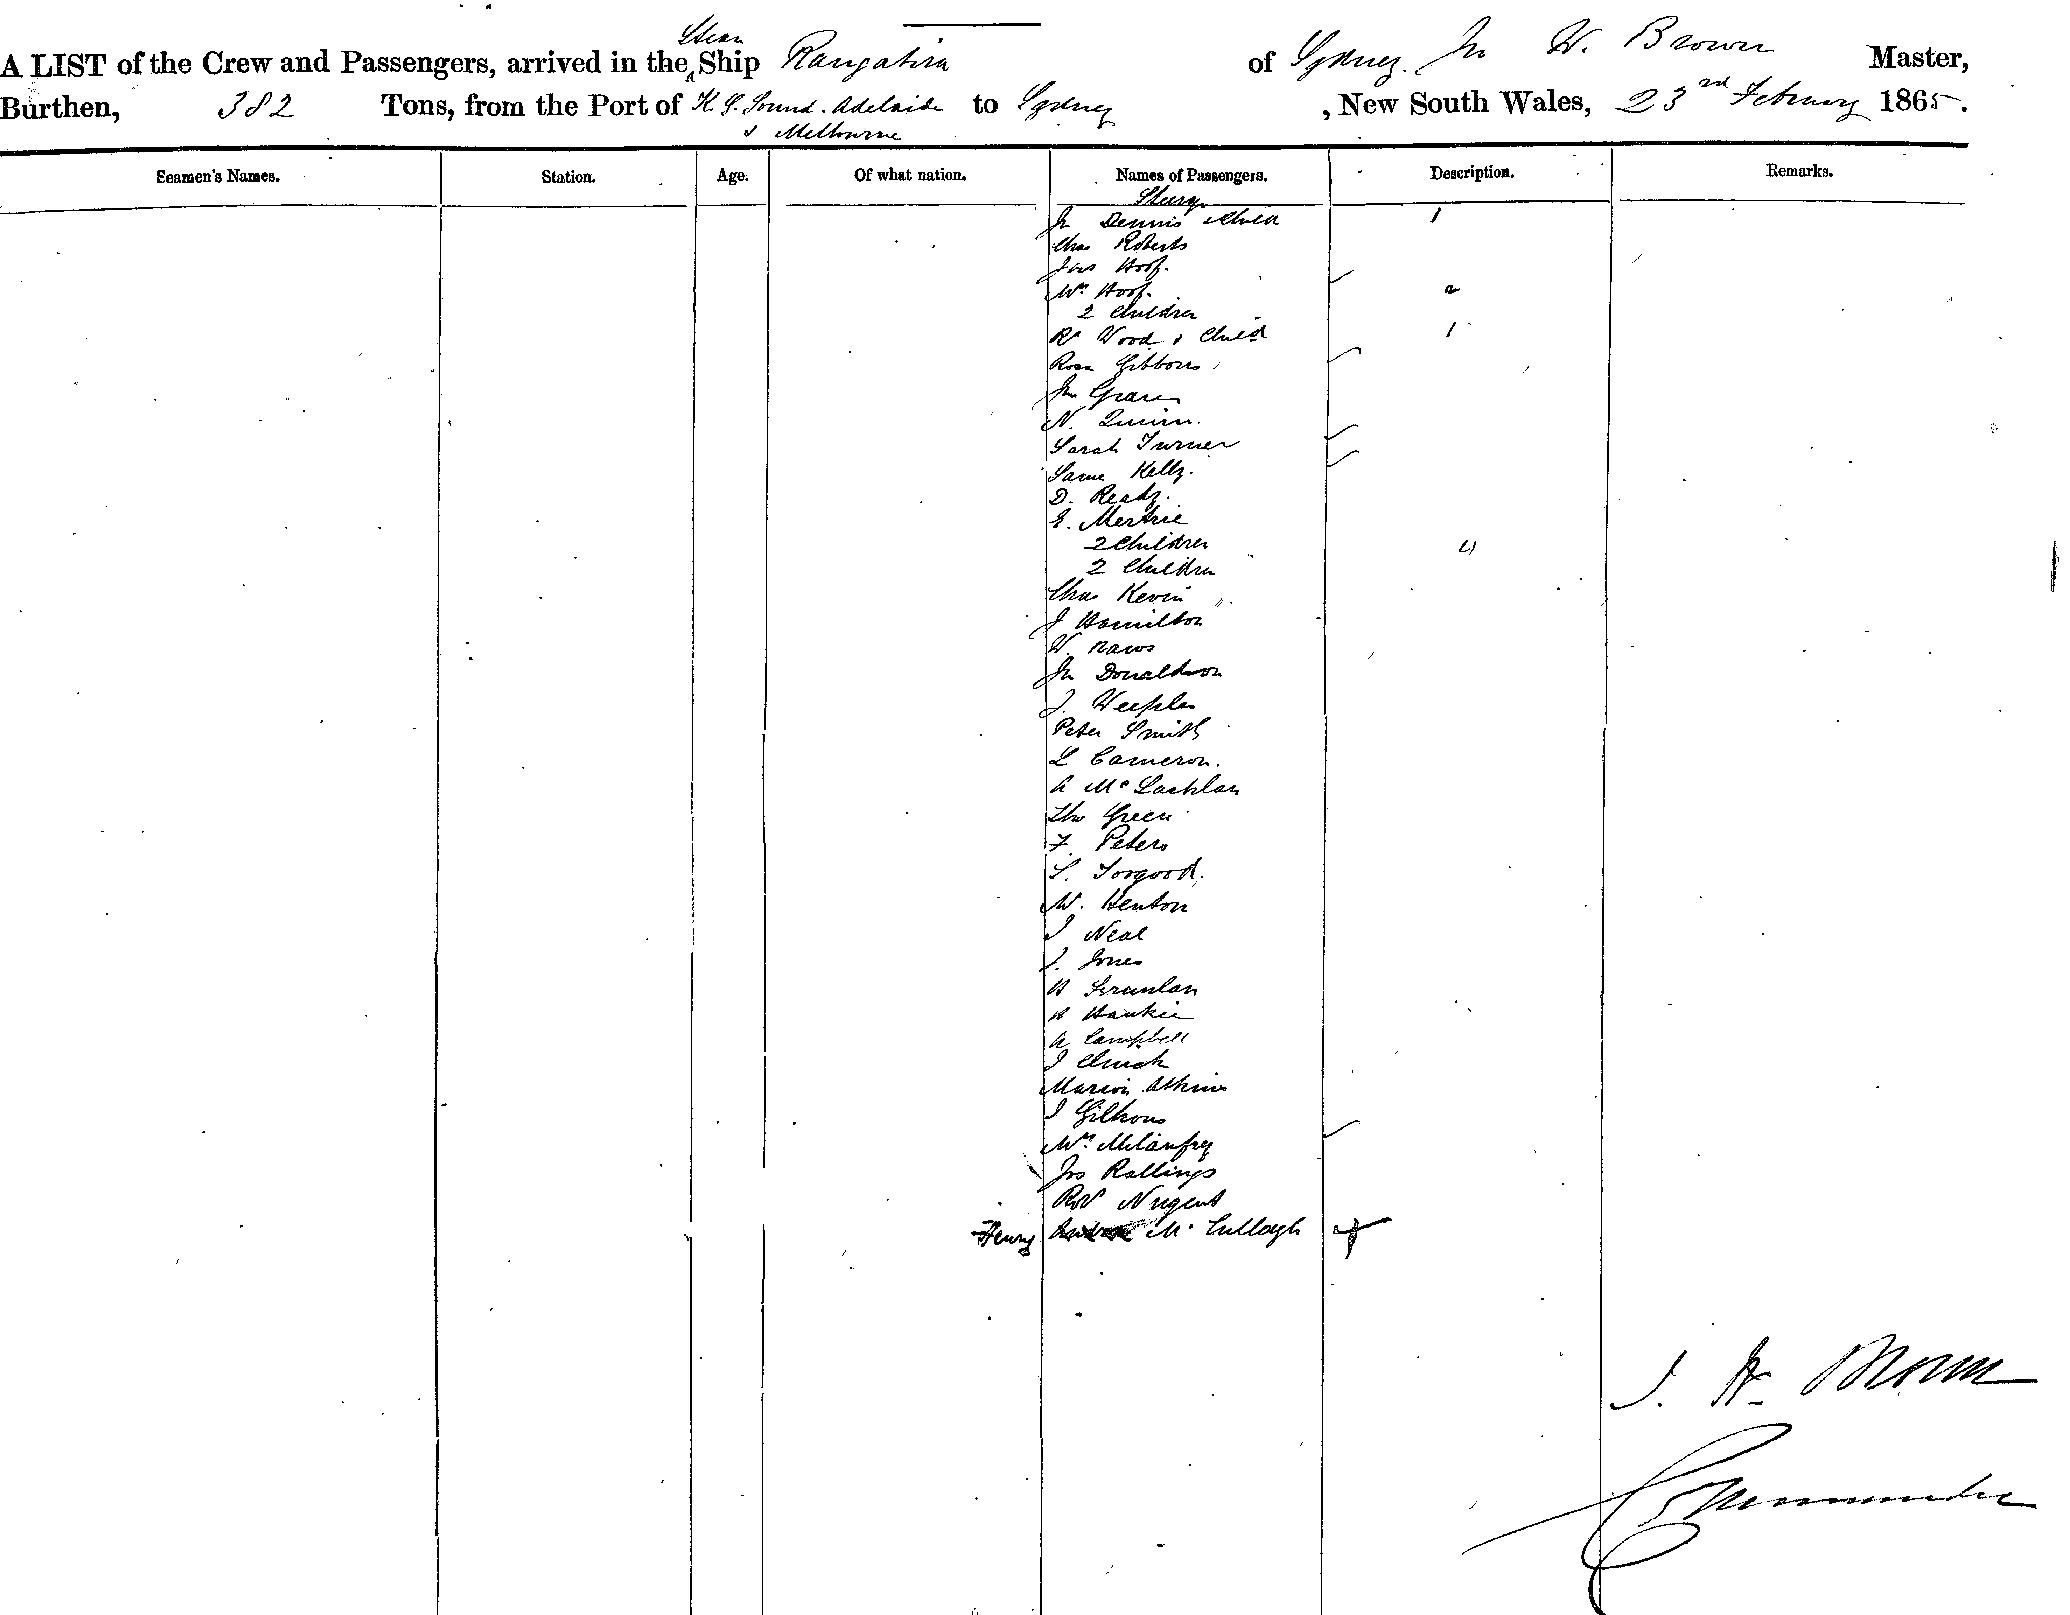 Steam
A LIST of the Crew and Passengers, arrived in the Ship Rangatira of Sydney Jn W. Brown Master,
Burthen, 382 Tons, from the Port of K. G. Sound. Adelaide to Sydney, New South Wales, 23rd February 1865.
& Melbourne
Seamen's Names. Station. Age. Of what nation. Names of Passengers. Description. Remarks.
Jn Dennis & Child 1
Chas Roberts
Jas
Mrs
2 Children 2
Wood & Child 1
Rosa Gibbons
Jn
N. Quinn.
Sarah Turner
Kelly.
D. Ready.
E.
2 Children 4
2 Children
Chas Kevin
J Hamilton
W.
Jn Donaldson
J.
Peter Smith
L Cameron.
A McLachlan
Thos Green
F. Peters
S. Torgood.
W. Henton
J Neal
J. Jones
H Scanlan
H Hankie
A Campbell
J
Marion Atkins
J
Mrs
Jos Rallings
Robt Nugent
Henry McCullagh
J. W. Brown
Commander